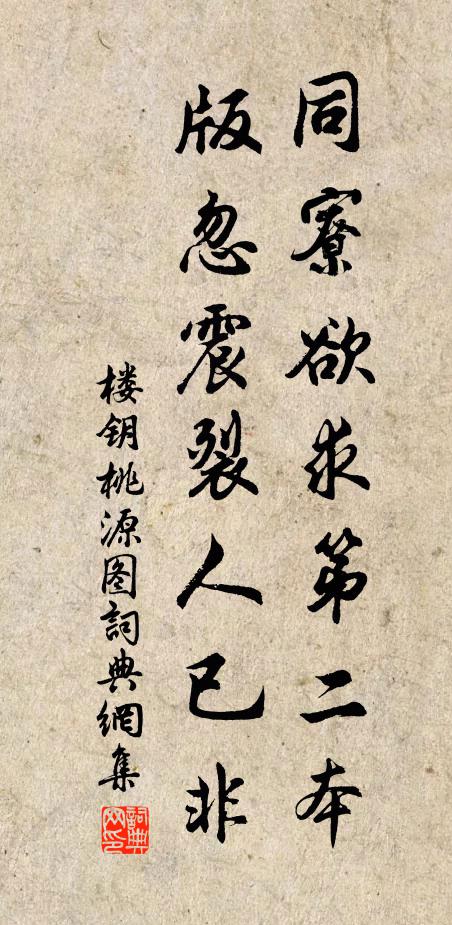 同寮欲求第二本
版忽震裂人已非
楼钥桃源图詞典網集
詞典网印